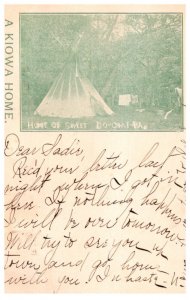 A KIOWA HOME.
HOME OF SWEET
Dear Sadie,
Rec'd your letter last
night when I got in
from. If nothing happens
I will be over tomorrow
Will try to see you up
town and go home
with you. In haste